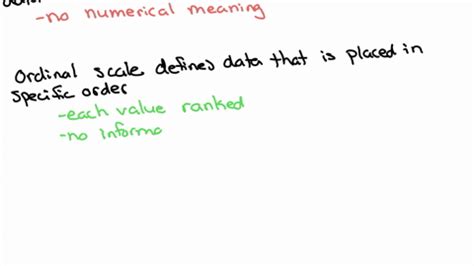 -no numerical meaning
Ordinal scale defines data that is placed in
specific order
-each value ranked
-no informa